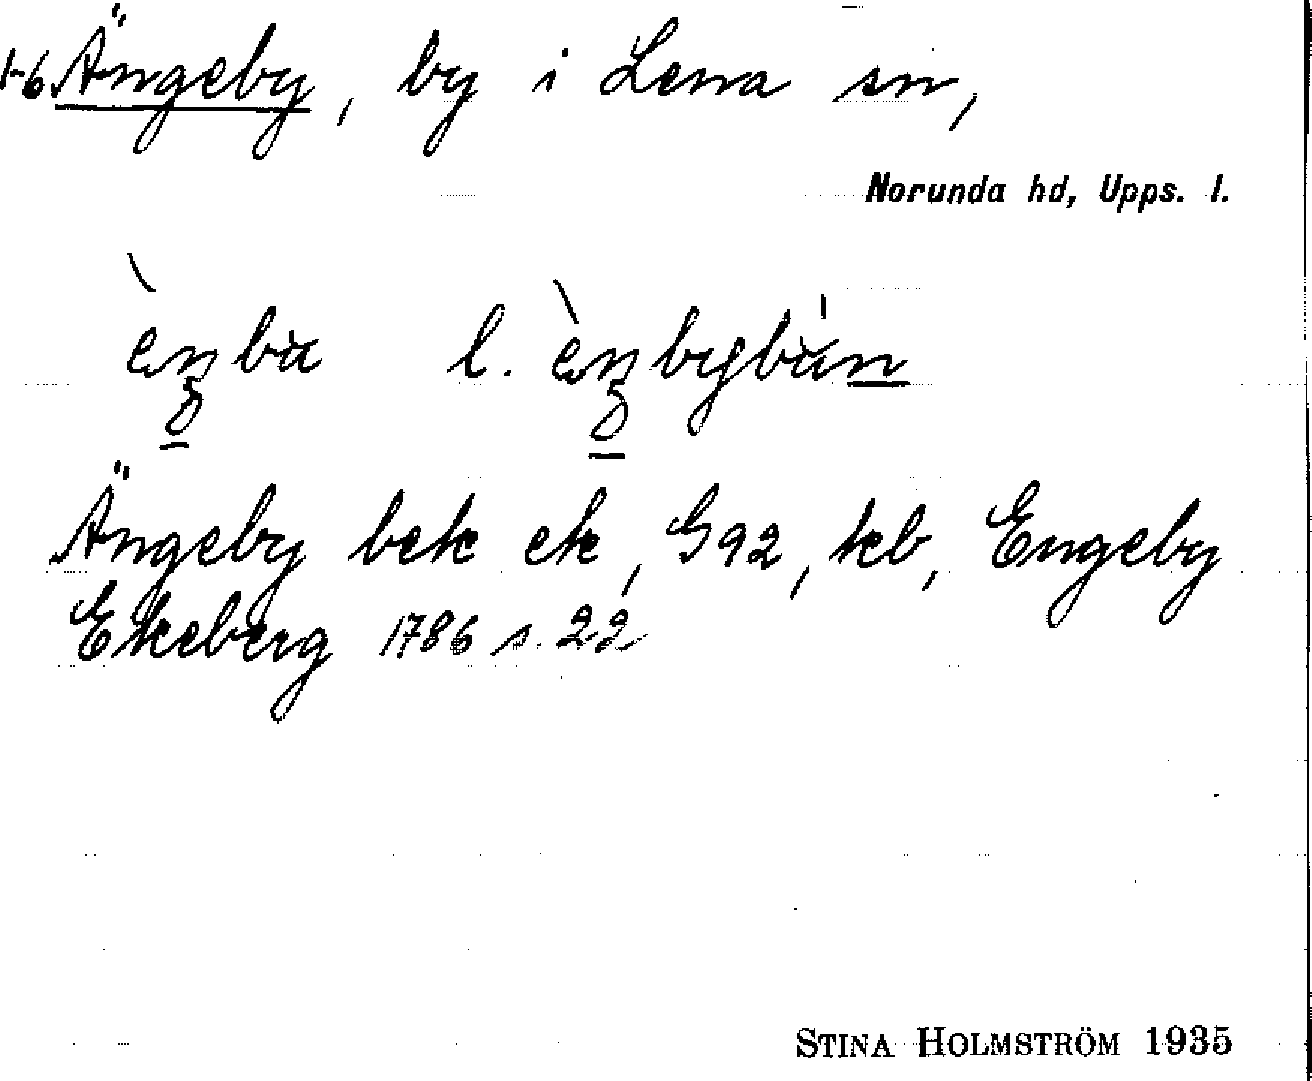 1-6 Ängeby, by i Lena sn,
Norunda hd, Upps. l.
l.
Ängeby bek ek, G92, kb, Engeby
Ekeberg 1786 s. 22
STINA HOLMSTRÖM 1935